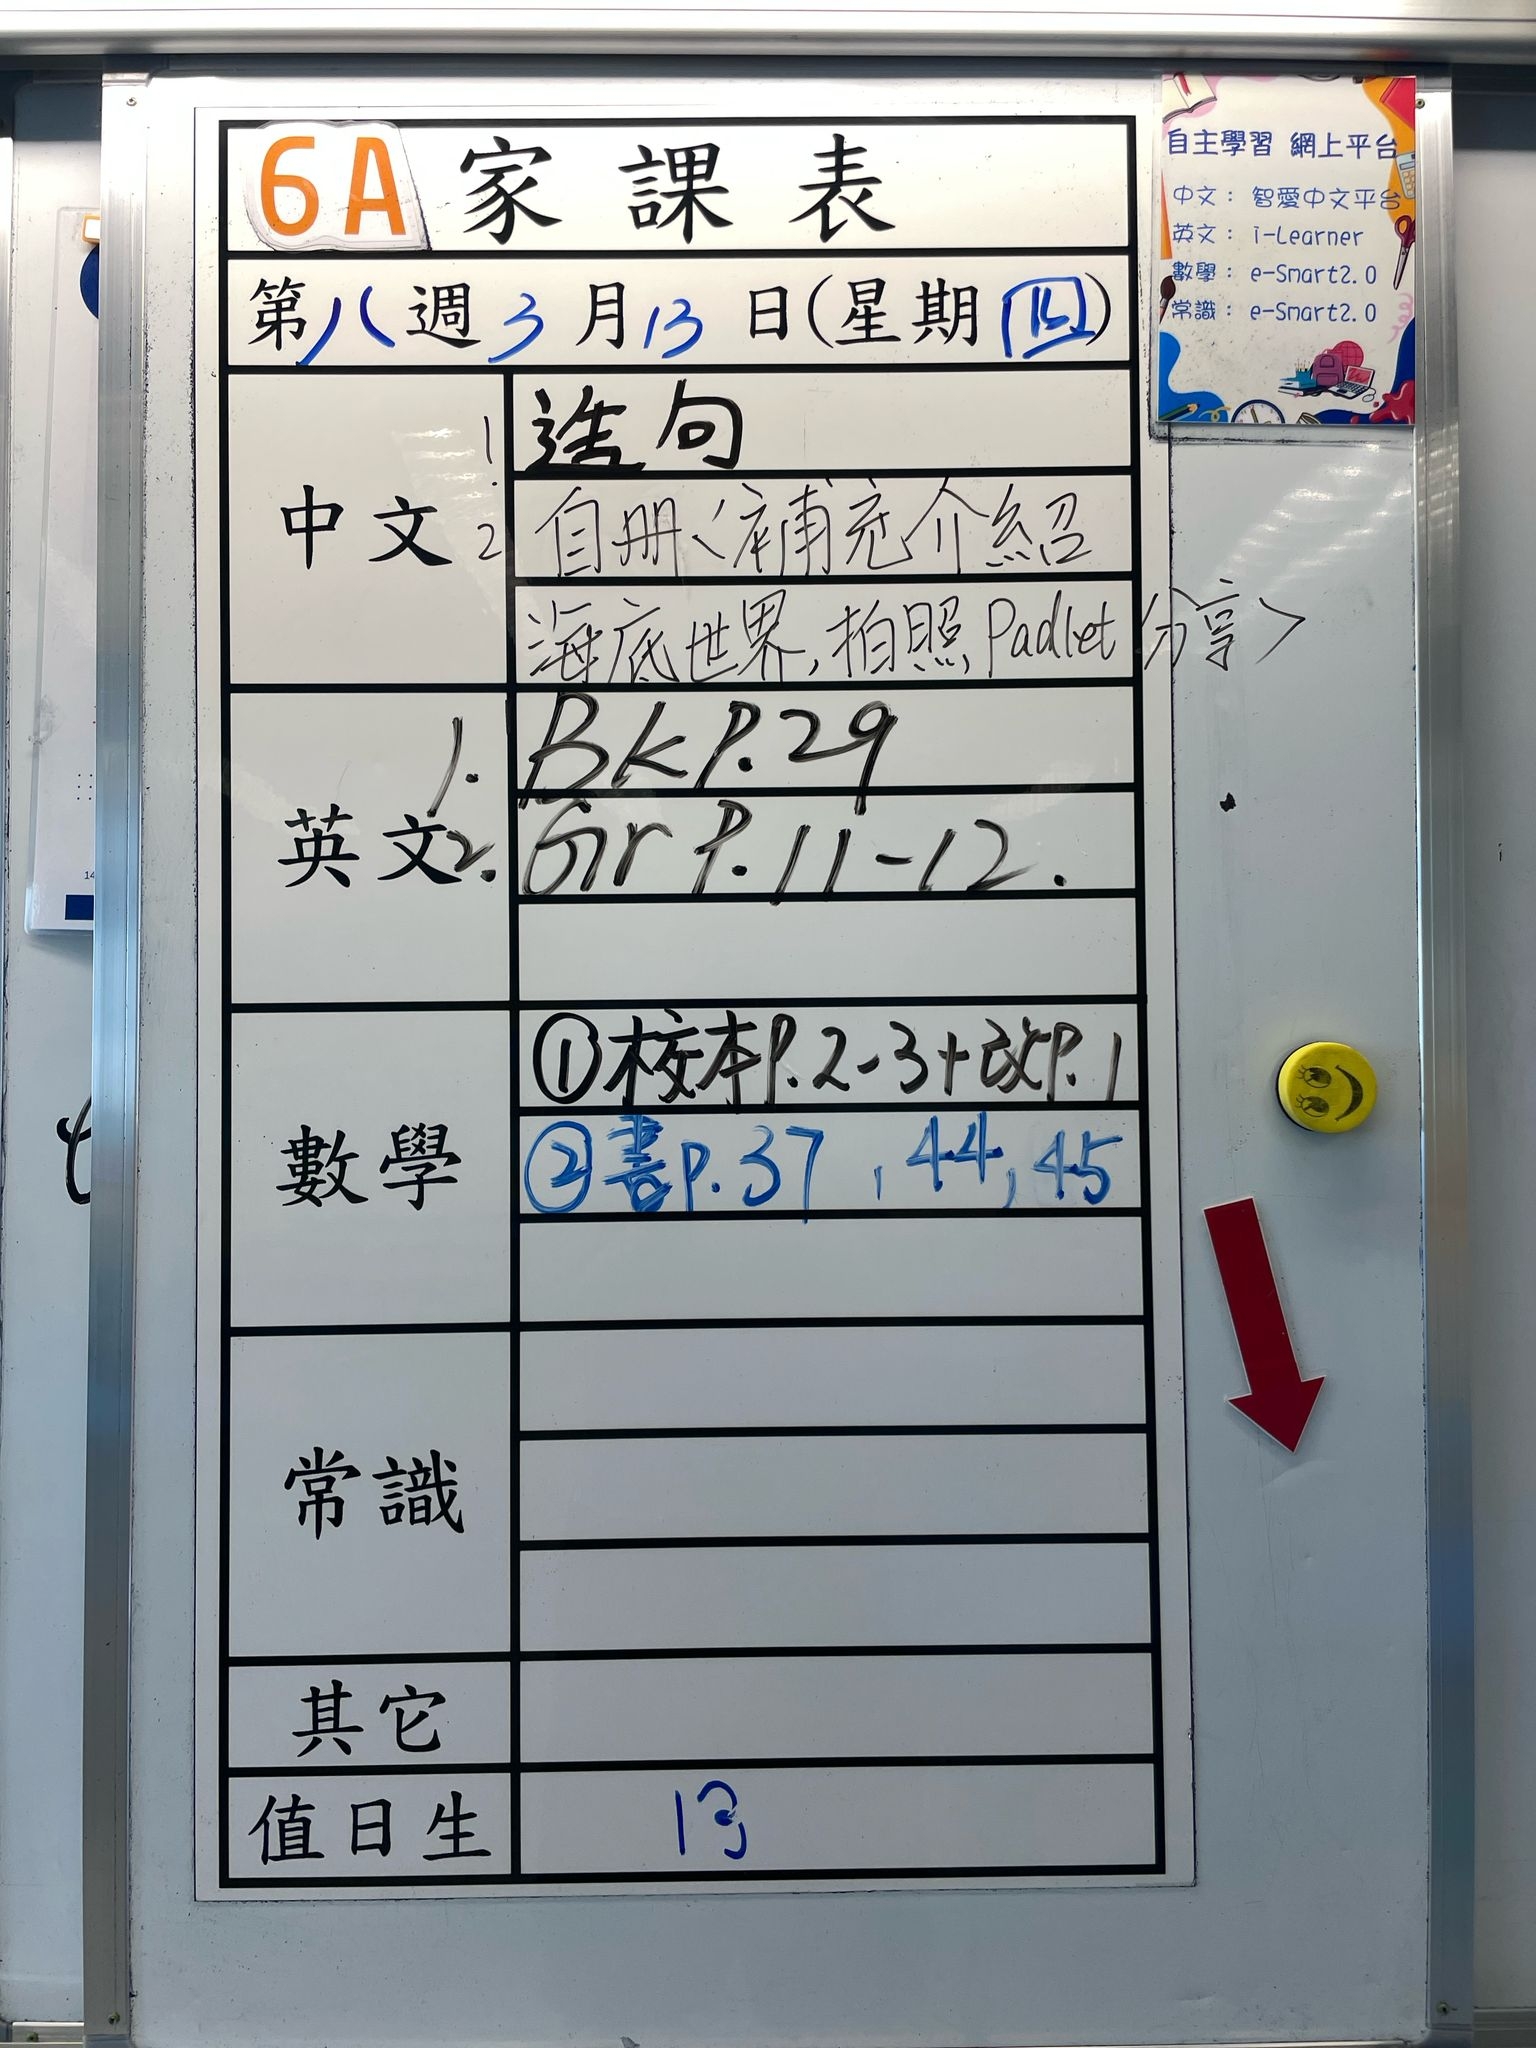 6A 家課表
第八週3月13日(星期四)
中文
1. 造句
2. 自冊〈補充介紹
海底世界,拍照Padlet分享〉
英文
1. Bk P.29
2. Gr P.11-12.
數學
①校本P.2-3+改P.1
②書P.37,44,45
常識
其它
值日生
13
自主學習 網上平台
中文: 智愛中文平台
英文: i-Learner
數學: e-Smart2.0
常識: e-Smart2.0